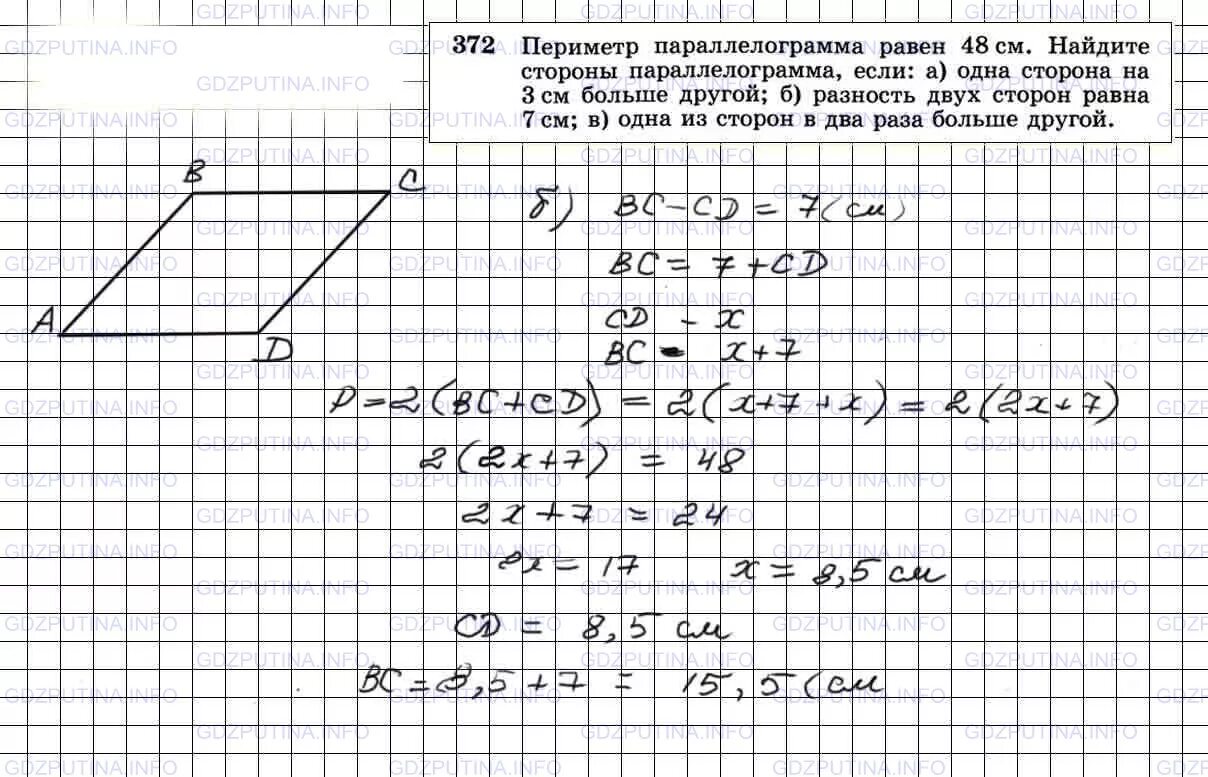 372 Периметр параллелограмма равен 48 см. Найдите
стороны параллелограмма, если: а) одна сторона на
3 см больше другой; б) разность двух сторон равна
7 см; в) одна из сторон в два раза больше другой.
B
C
A
D
б) BC-CD = 7 (см)
BC = 7+CD
CD - x
BC - x+7
P=2(BC+CD) = 2(x+7+x) = 2(2x+7)
2(2x+7) = 48
2x+7 = 24
2x = 17 x = 8,5 см
CD = 8,5 см
BC = 8,5+7 = 15,5 (см
GDZPUTINA.INFO